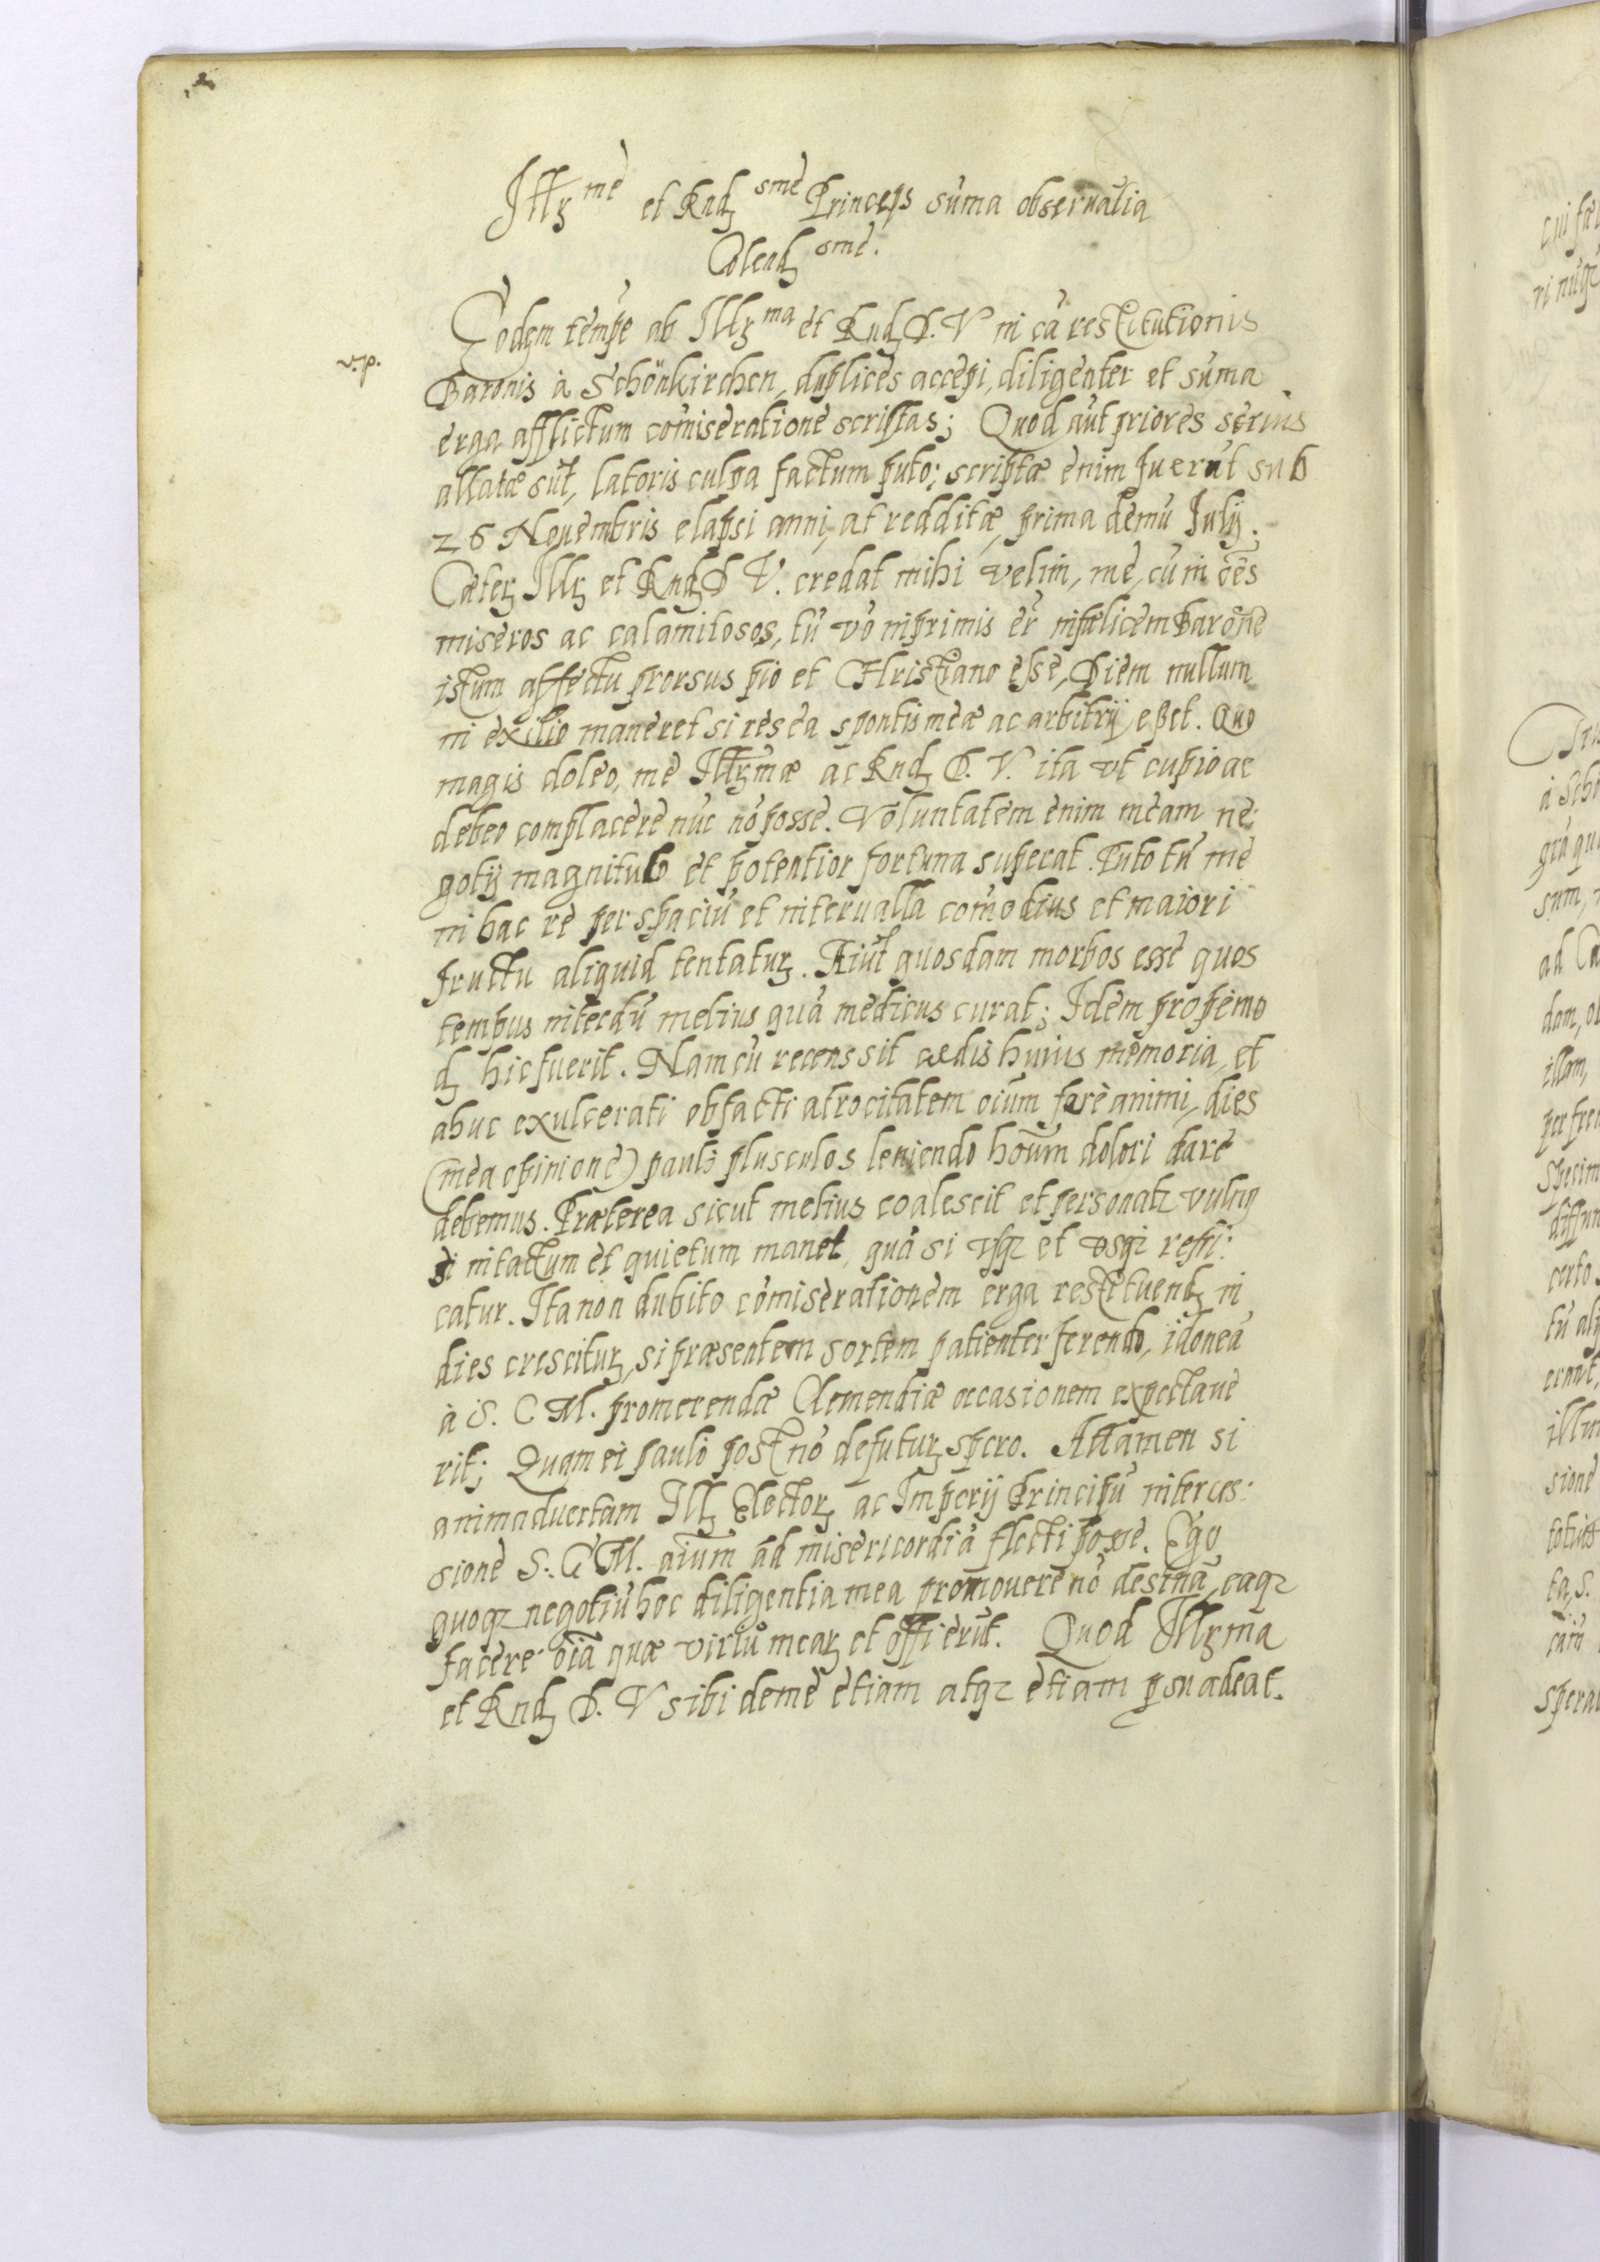 Illꝫ me et Rndꝫ sme Princeps sūma obseruātia
Colendꝫ sme.
Eodem tempe ab Illꝫ ma et Rndꝫ D. V in cā restitutionis
v.p.
Baronis à Schönkirchen, duplices accepi, diligenter et sūma
erga afflictum comiseratione scriptas; Quod aūt priores serius
allatæ sūt, latoris culpa factum puto; scriptæ enim fuerūt sub
26 Nouembris elapsi anni, at redditæ, prima demū Iulij.
Cæterꝫ Illꝫ et Rndꝫ D V. credat mihi velim, me, cū in oēs
miseros ac calamitosos, tū vō inprimis er̃ infælicem Baronē
istum affectu prorsus pio et Christiano esse, Diem nullum
in exilio maneret si res ea spontis meæ ac arbitrij eßet. Quo
magis doleo, me Illꝫmæ ac Rndꝫ D. V. ita vt cupio ac
debeo complacere nūc nō posse. Voluntatem enim meam ne:
gotij magnitudo et potentior fortuna superat. Puto tn̄ me
in hac re per spaciū et interualla comodius et maiori
fructu aliquid tentaturꝫ. Aiūt quosdam morbos esse quos
tempus interdū melius quā medicus curat; Idem propemo
dꝫ hic fuerit. Nam cū recens sit cædis huius memoria, et
adhuc exulcerati ob facti atrocitatem oium ferè animi, dies
(mea opinione) paulò plusculos leniendo hoūm dolori dare
debemus. Præterea sicut melius coalescit et personatꝛ vulnꝰ
si intactum et quietum manet, quā si vsqꝫ et vsqꝫ refri:
catur. Ita non dubito comiserationem erga restituendꝫ in
dies cresciturꝫ, si præsentem sortem patienter ferendo, idoneā
à S. C M. promerendæ Clemendiæ occasionem expectaue
rit; Quam ei paulò post nō defuturꝫ spero. Attamen si
animaduertam Illꝫ Electorꝫ ac Imperij Principū interces:
sione S. C M. aīum ad misericordiā flecti posse. Ego
quoqꝫ negotiū hoc diligentia mea promouere nō desinā, eaqꝫ
facere oīa quæ virtū mearꝫ et offi erūt. Quod Illꝫma
et Rndꝫ D. V sibi de me etiam atqꝫ etiam ꝑsuadeat.